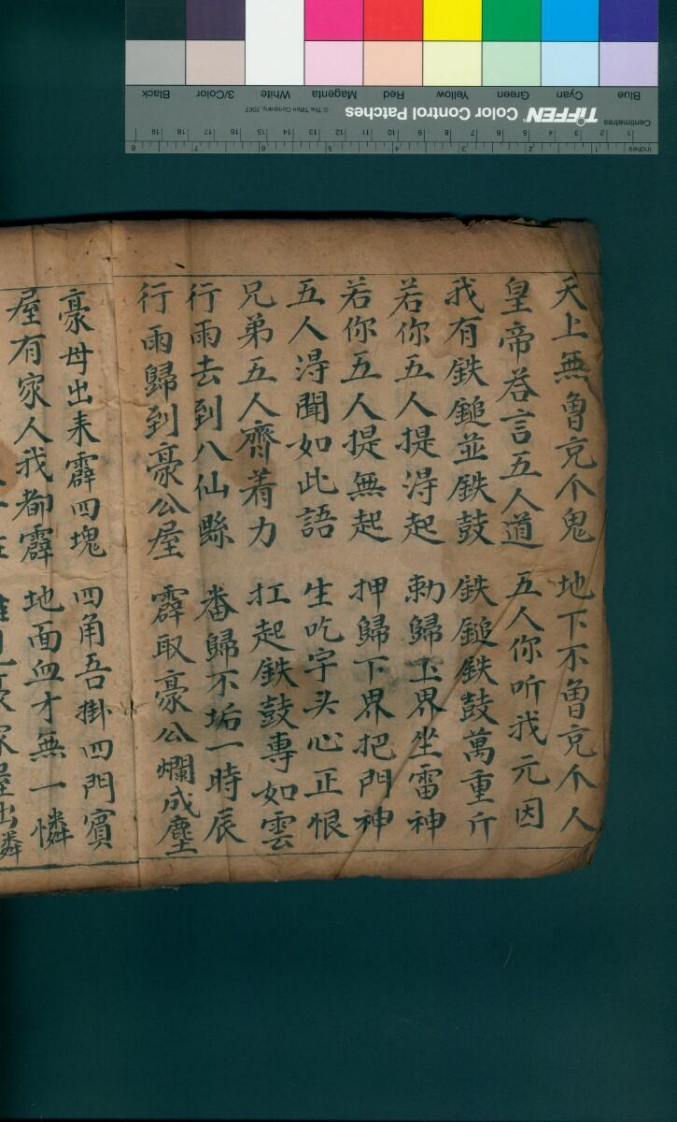 天上無曾克个鬼 地下不曾克个人
皇帝答言五人道 五人你听我元因
我有鉄鎚並鉄鼓 鉄鎚鉄鼓萬重斤
若你五人提淂起 勅歸玉界坐雷神
若你五人提無起 押歸下界把門神
五人淂聞如此語 生吃字头心正恨
兄弟五人齊着力 扛起鉄鼓專如雲
行雨去到八仙縣 番歸不垢一時辰
行雨歸到豪公屋 霹取豪公爛成塵
豪母出来霹四塊 四角吾掛四門賓
屋有家人我都霹 地面血才無一憐
家屋出憐
Blue Cyan Green Yellow Red Magenta White 3/Color Black
TIFFEN Color Control Patches © The Tiffen Company, 2007
Centimetres 1 2 3 4 5 6 7 8 9 10 11 12 13 14 15 16 17 18 19
Inches 1 2 3 4 5 6 7 8